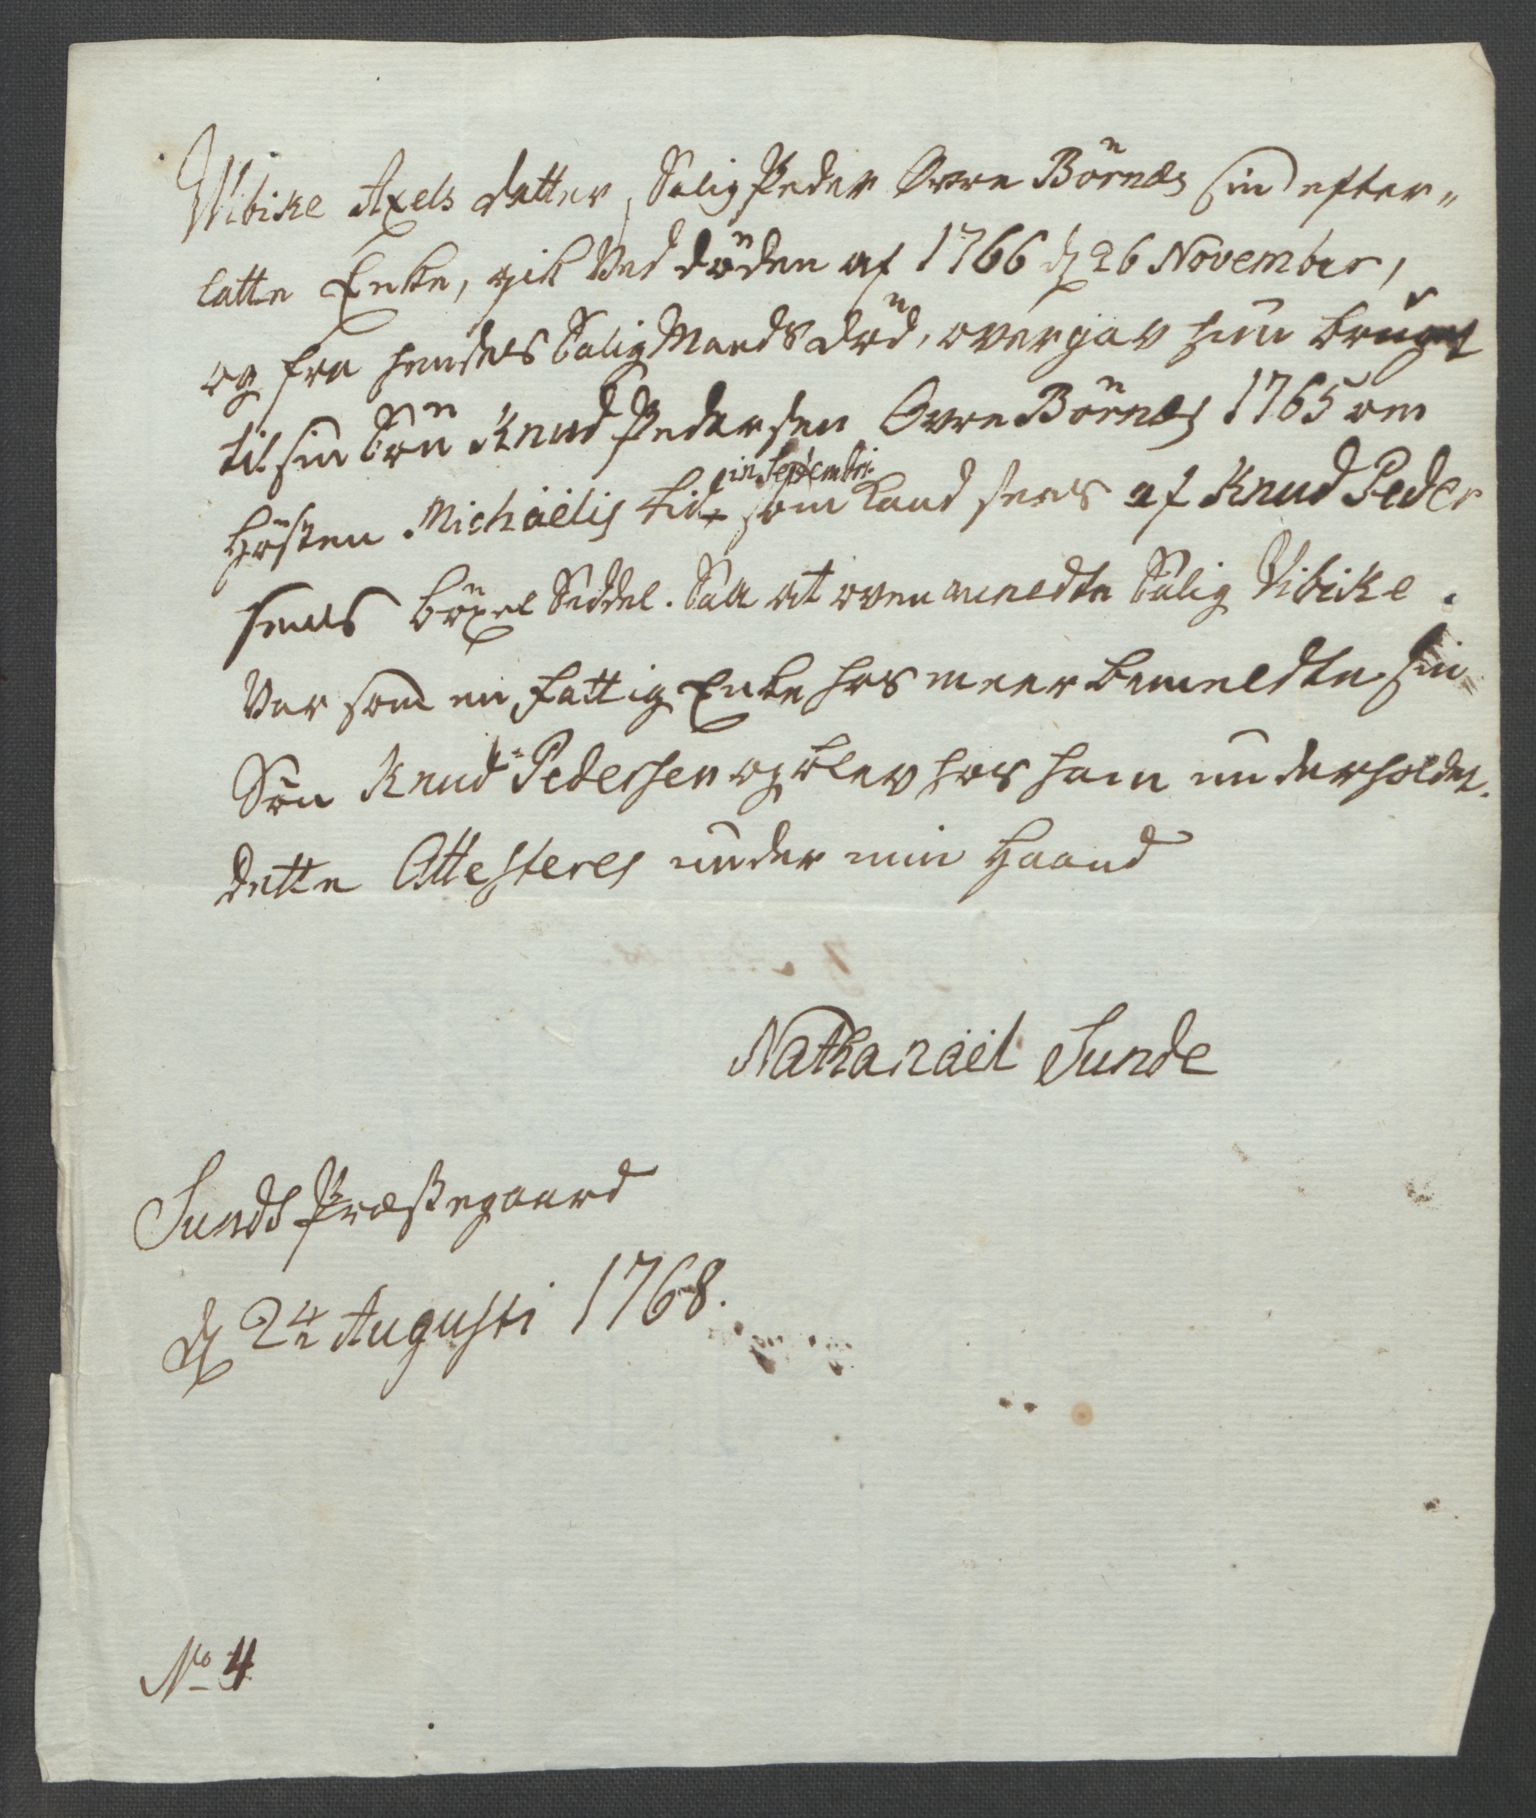 Wibike Axels datter, Salig Peder Øvre Börnæs sin efter-
latte Enke, gik ved döden af 1766 d 26 November,
og fra hendes Salig Mands död, overgav hun bruget
til sin Sön Knud Pedersen Øvre Börnæs 1765 om
Hösten Michaëlis tid in Septembri som kand sees af Knud Peder
sens böxel Seddel. Saa at ovenmeldte Salig Vibike
Var som en fattig Enke hos meerbemeldte sin
Sön Knud Pedersen og blev hos ham underholdet.
Dette Attesteres under min Haand
Nathanaël Sunde
Sunds Præstegaard
d 24 Augusti 1768.
No 4